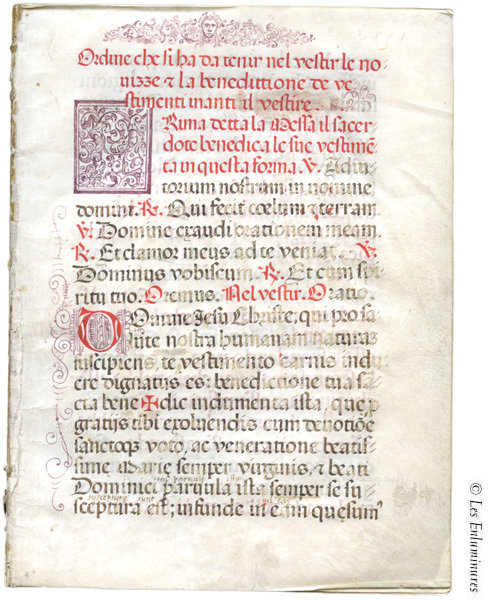 Ordine che si ha da tenir nel vestir le no-
vizze & la benedittione de ve-
stimenti inanti il vestire.
Rima detta la Messa il sacer-
dote benedica le sue vestime-
ta in questa forma. V. Adiu-
torium nostram in nomine
domini. R. Qui fecit cœlum & terram.
V. Domine exaudi orationem meam.
R. Et clamor meus ad te veniat. V.
Dominus vobiscum. R. Et cum spi-
ritu tuo. Oremus. Nel vestir. Oratio.
Domine Jesu Christe, qui pro sa-
lute nostra humanam naturaz
suscipiens, te vestimento carnis indu-
ere dignatus es: benedictione tua sa-
cta bene✠dic indumenta ista, que p
gratijs tibi exoluendis cum devotiōe
sanctoqz voto, ac veneratione beatis-
sime Marie semper virginis, & beati
Dominici parvula ista semper se su-
sceptura est; infunde in eam quęsum9
© Les Enluminures